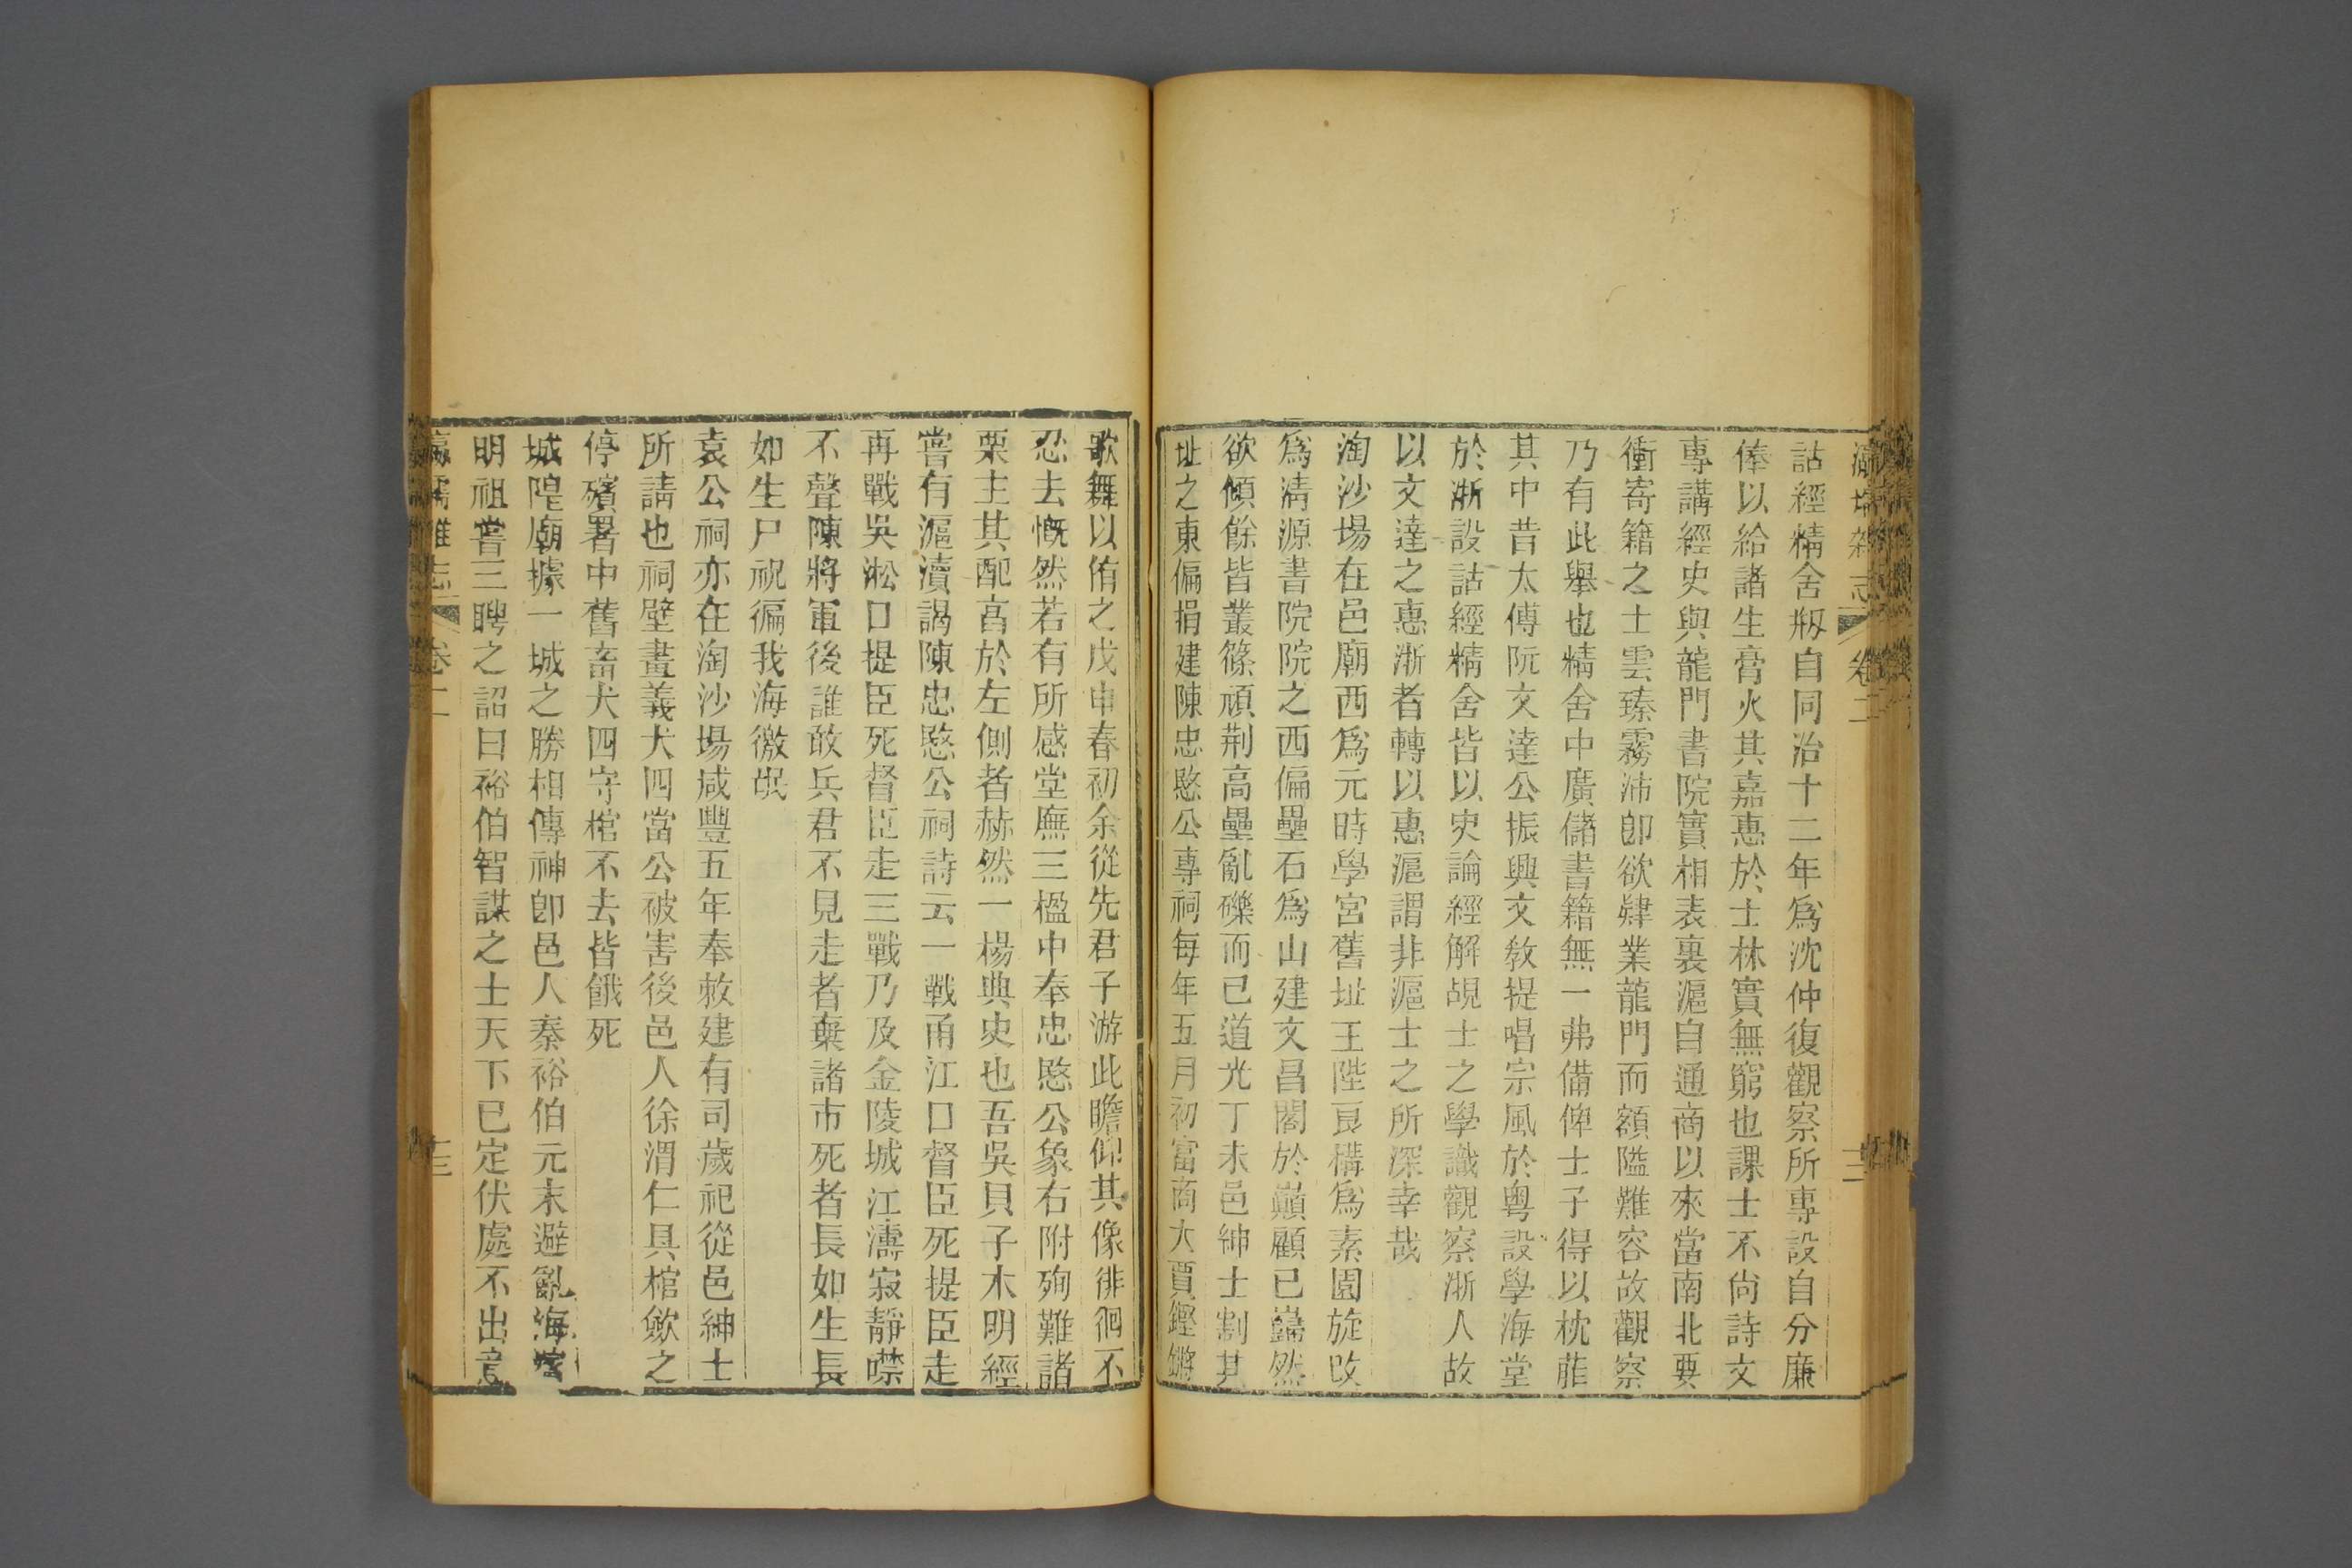 瀛壖雜志 卷二 十二
詁經精舍剏自同治十二年爲沈仲復觀察所專設自分廉
俸以給諸生膏火其嘉惠於士林實無窮也課士不尙詩文
專講經史與龍門書院實相表裏滬自通商以來當南北要
衝寄籍之士雲臻霧沛卽欲肄業龍門而額隘難容故觀察
乃有此舉也精舍中廣儲書籍無一弗備俾士子得以枕葄
其中昔太傅阮文達公振興文敎提唱宗風於粵設學海堂
於浙設詁經精舍皆以史論經解覘士之學識觀察浙人故
以文達之惠浙者轉以惠滬謂非滬士之所深幸哉
淘沙場在邑廟西爲元時學宮舊址王陛艮構爲素園旋改
爲淸源書院院之西偏壘石爲山建文昌閣於巔顧已巋然
欲傾餘皆叢篠頑荆高壘亂礫而已道光丁未邑紳士割其
址之東偏捐建陳忠愍公專祠每年五月初富商大賈鏗鏘
歌舞以侑之戊申春初余從先君子游此瞻仰其像徘徊不
忍去慨然若有所感堂廡三楹中奉忠愍公象右附殉難諸
栗主其配亯於左側者赫然一楊典史也吾吳貝子木明經
嘗有滬瀆謁陳忠愍公祠詩云一戰甬江口督臣死提臣走
再戰吳淞口提臣死督臣走三戰乃及金陵城江濤寂靜噤
不聲陳將軍後誰敢兵君不見走者棄諸市死者長如生長
如生尸祝徧我海徼氓
袁公祠亦在淘沙場咸豐五年奉敕建有司歲祀從邑紳士
所請也祠壁畫義犬四當公被害後邑人徐渭仁具棺斂之
停殯署中舊畜犬四守棺不去皆餓死
城隍廟據一城之勝相傳神卽邑人秦裕伯元末避亂海濱
明祖嘗三聘之詔曰裕伯智謀之士天下已定伏處不出意
瀛壖雜志 卷二 十三